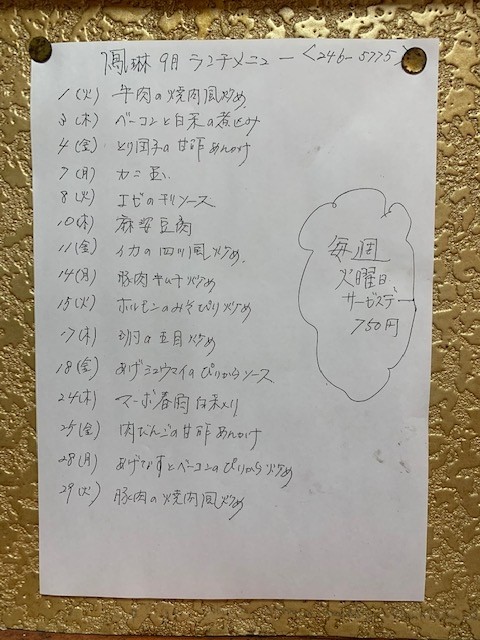 鳳琳 9月 ランチメニュー <246-5775>
1(火) 牛肉の焼肉風炒め
3(木) ベーコンと白菜の煮込み
4(金) とり団子の甘酢あんかけ
7(月) カニ玉
8(火) エビのチリソース
10(木) 麻婆豆腐
11(金) イカの四川風炒め
14(月) 豚肉キムチ炒め
15(火) ホルモンのみそぴり炒め
17(木) の五目炒め
18(金) あげシュウマイのぴりからソース
24(木) マーボ春雨白菜入り
25(金) 肉だんごの甘酢あんかけ
28(月) あげなすとベーコンのぴりから炒め
29(火) 豚肉の焼肉風炒め
毎週
火曜日
サービスデー
750円